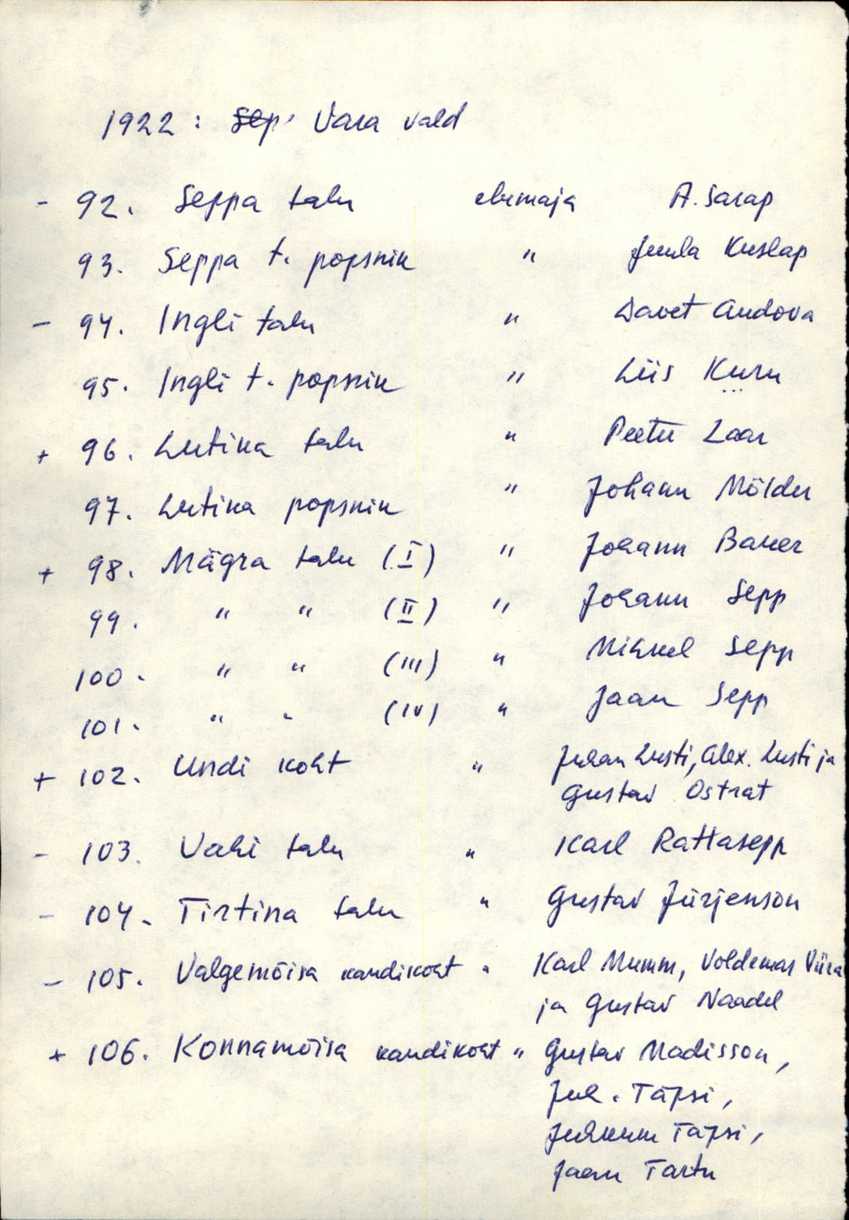 1922 : Sep, Vara vald
- 92. Seppa talu elumaja A. Sarap
93. Seppa t. popsnik " Juula Kuslap
- 94. Ingli talu " Davet Audova
95. Ingli t. popsnik " Liis Kuru
+ 96. Lutika talu " Peeter Laar
97. Lutika popsnik " Johann Mölder
+ 98. Mägra talu (I) " Johann Bauer
99. " " (II) " Johann Sepp
100. " " (III) " Mihkel Sepp
101. " " (IV) " Jaan Sepp
+ 102. Undi koht " Juhan Lusti, Alex. Lusti ja
Gustav Ostrat
- 103. Vahi talu " Karl Rattasepp
- 104. Tirtina talu " Gustav Jürjenson
- 105. Valgemõisa kandikoht " Karl Mumm, Voldemar Viira
ja Gustav Naadel
+ 106. Konnamõisa kandikoht " Gustav Madisson,
Juh. Täpsi,
Täpsi,
Jaan Tartu